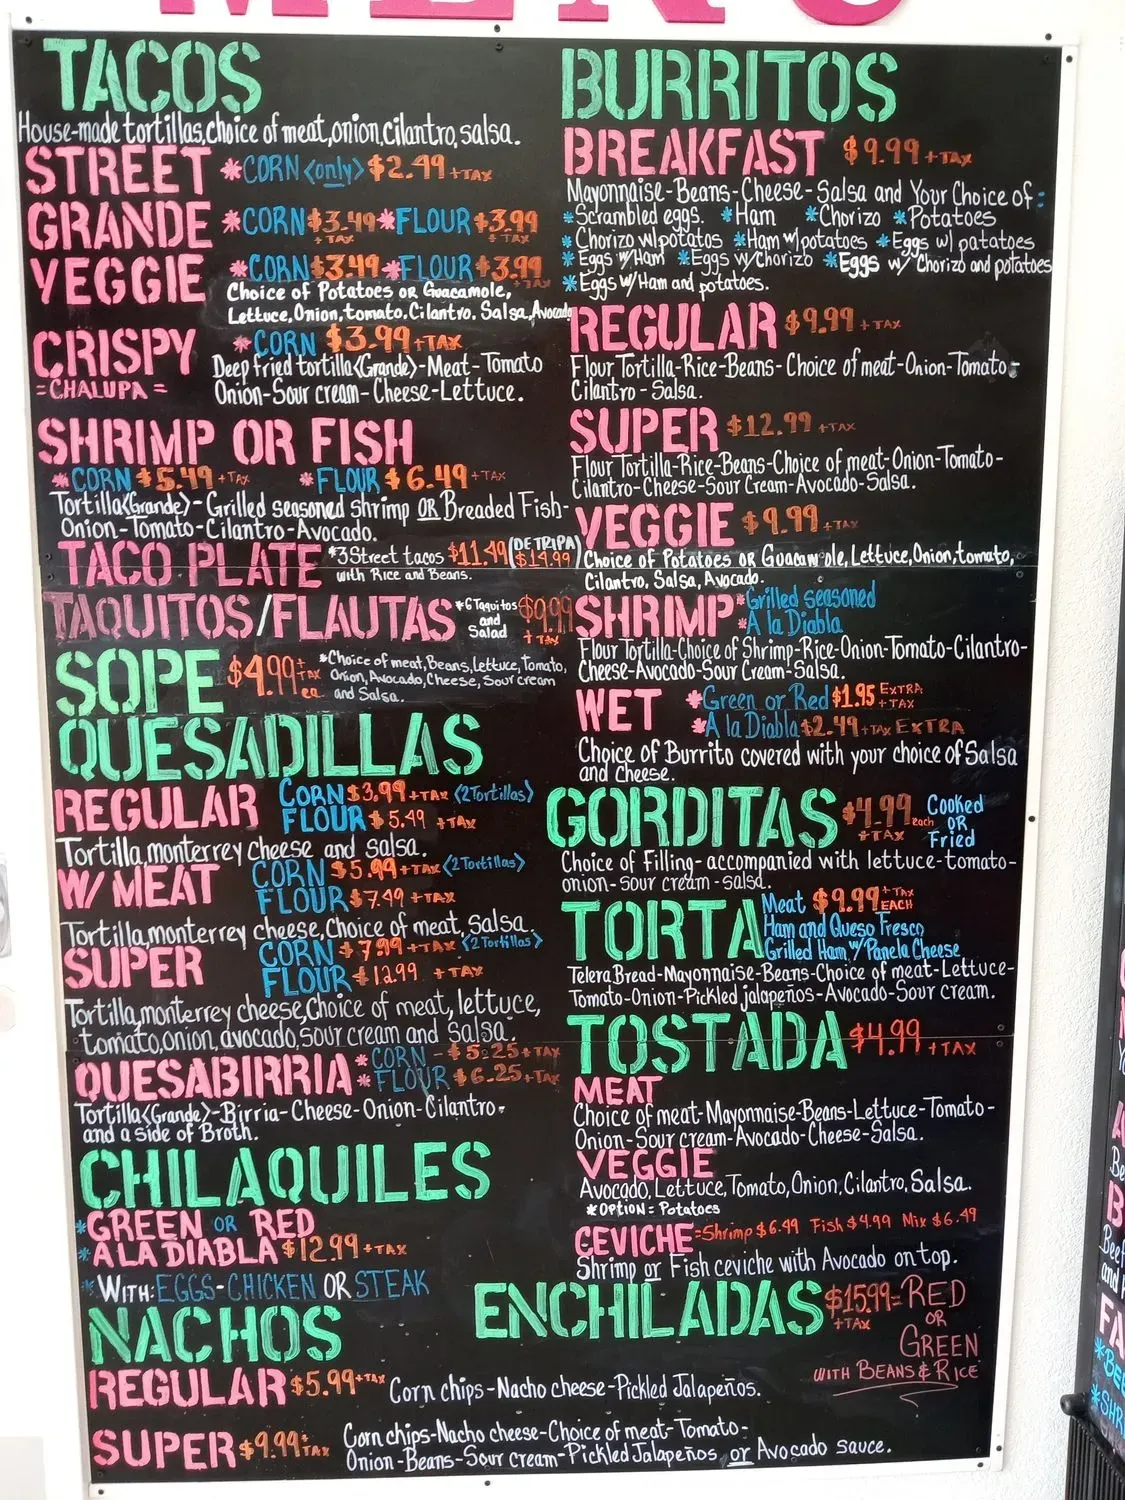 MENU
TACOS
House-made tortillas, choice of meat, onion, cilantro, salsa.
STREET *CORN <only> $2.49 +TAX
GRANDE *CORN $3.49 *FLOUR $3.99
+TAX +TAX
VEGGIE *CORN $3.49 *FLOUR $3.99
+TAX +TAX
Choice of Potatoes OR Guacamole,
Lettuce, Onion, tomato, Cilantro, Salsa, Avocado
CRISPY *CORN $3.99 +TAX
=CHALUPA=
Deep fried tortilla <Grande>-Meat-Tomato
Onion-Sour cream-Cheese-Lettuce.
SHRIMP OR FISH
*CORN $5.49 +TAX *FLOUR $6.49 +TAX
Tortilla <Grande>-Grilled seasoned shrimp OR Breaded Fish-
Onion-Tomato-Cilantro-Avocado.
TACO PLATE *3 Street tacos $11.49 (DE TRIPA
with Rice and Beans. $14.99)
TAQUITOS/FLAUTAS *6 Taquitos $9.99
and
Salad +TAX
SOPE $4.99 +TAX ea
*Choice of meat, Beans, lettuce, Tomato,
Onion, Avocado, Cheese, Sour cream
and Salsa.
QUESADILLAS
REGULAR CORN $3.99 +TAX <2 Tortillas>
FLOUR $5.49 +TAX
Tortilla, monterrey cheese and salsa.
W/ MEAT CORN $5.99 +TAX <2 Tortillas>
FLOUR $7.49 +TAX
Tortilla, monterrey cheese, Choice of meat, salsa.
SUPER CORN $7.99 +TAX <2 Tortillas>
FLOUR $12.99 +TAX
Tortilla, monterrey cheese, Choice of meat, lettuce,
tomato, onion, avocado, sour cream and salsa.
QUESABIRRIA *CORN - $5.25 +TAX
*FLOUR $6.25 +TAX
Tortilla <Grande>-Birria-Cheese-Onion-Cilantro-
and a side of Broth.
CHILAQUILES
*GREEN OR RED
*A LA DIABLA $12.99 +TAX
*WITH: EGGS-CHICKEN OR STEAK
NACHOS
REGULAR $5.99 +TAX Corn chips-Nacho cheese-Pickled Jalapeños.
SUPER $9.99 +TAX Corn chips-Nacho cheese-Choice of meat-Tomato-
Onion-Beans-Sour cream-Pickled Jalapeños or Avocado sauce.
BURRITOS
BREAKFAST $9.99 +TAX
Mayonnaise-Beans-Cheese-Salsa and Your Choice of:
*Scrambled eggs. *Ham *Chorizo *Potatoes
*Chorizo w/potatos *Ham w/potatoes *Eggs w/ patatoes
*Eggs w/Ham *Eggs w/Chorizo *Eggs w/ Chorizo and potatoes
*Eggs w/Ham and potatoes.
REGULAR $9.99 +TAX
Flour Tortilla-Rice-Beans-Choice of meat-Onion-Tomato-
Cilantro-Salsa.
SUPER $12.99 +TAX
Flour Tortilla-Rice-Beans-Choice of meat-Onion-Tomato-
Cilantro-Cheese-Sour Cream-Avocado-Salsa.
VEGGIE $9.99 +TAX
Choice of Potatoes OR Guacamole, Lettuce, Onion, tomato,
Cilantro, Salsa, Avocado.
SHRIMP *Grilled seasoned
*A la Diabla
Flour Tortilla-Choice of Shrimp-Rice-Onion-Tomato-Cilantro-
Cheese-Avocado-Sour Cream-Salsa.
WET *Green or Red $1.95 EXTRA +TAX
*A la Diabla $2.49 +TAX EXTRA
Choice of Burrito covered with your choice of Salsa
and cheese.
GORDITAS $4.99 each +TAX Cooked
OR
Fried
Choice of Filling-accompanied with lettuce-tomato-
onion-sour cream-salsa.
TORTA Meat $9.99 +TAX EACH
Ham and Queso Fresco
Grilled Ham w/ Panela Cheese
Telera Bread-Mayonnaise-Beans-Choice of meat-Lettuce-
Tomato-Onion-Pickled jalapeños-Avocado-Sour cream.
TOSTADA $4.99 +TAX
MEAT
Choice of meat-Mayonnaise-Beans-Lettuce-Tomato-
Onion-Sour cream-Avocado-Cheese-Salsa.
VEGGIE
Avocado, Lettuce, Tomato, Onion, Cilantro, Salsa.
*OPTION = Potatoes
CEVICHE =Shrimp $6.49 Fish $4.99 Mix $6.49
Shrimp or Fish ceviche with Avocado on top.
ENCHILADAS $15.99 +TAX = RED
OR
GREEN
WITH BEANS & RICE